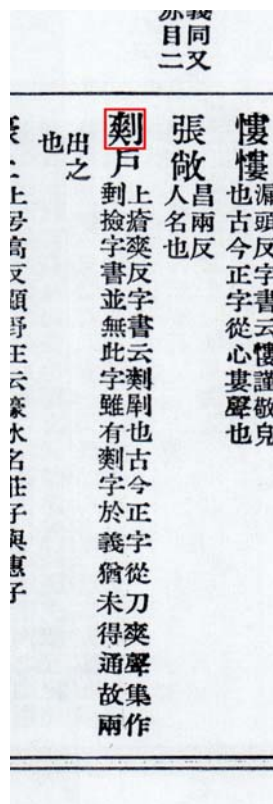 義同又
亦目二
慺慺
漏頭反字書云慺謹敬皃
也古今正字從心婁聲也
張敞
昌兩反
人名也
戶
上瘡爽反字書云也古今正字從刀爽聲集作
撿字書並無此字雖有字於義猶未得通故兩
出之
也
上号高反顧野王云濠水名莊子與惠子